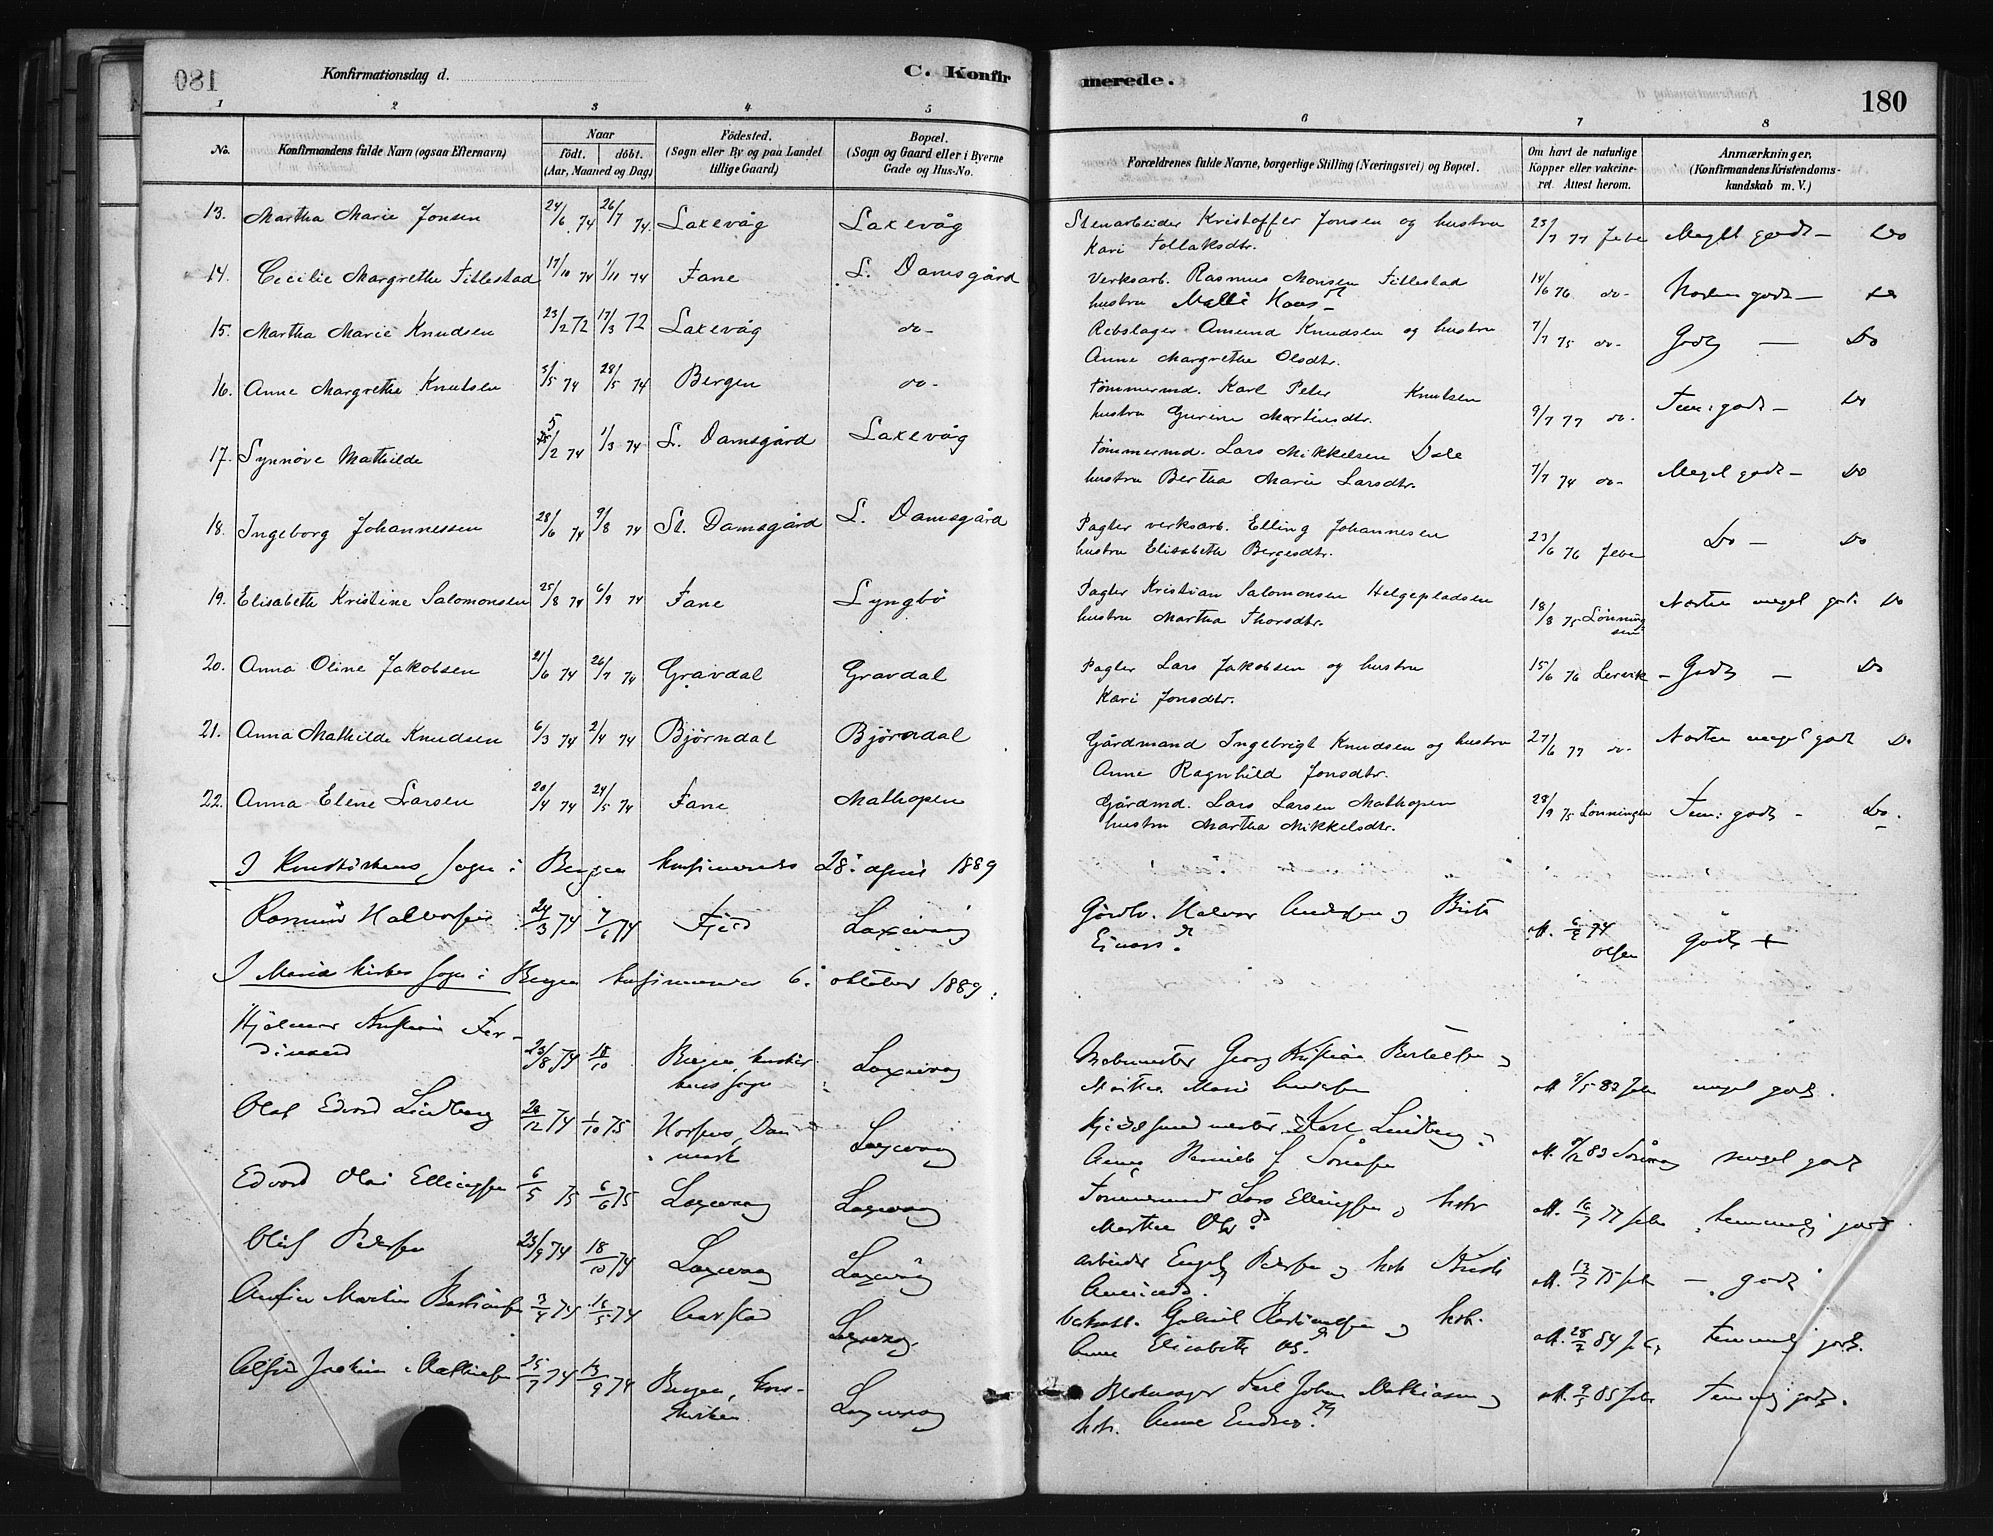 180
Konfirmationsdag d.
C. Konfirmerede.
180
1 2 3 4 5 6 7 8
No.
Konfirmandens fulde Navn (ogsaa Efternavn)
Naar
født. døbt.
(Aar, Maaned og Dag)
Fødested.
(Sogn eller By og paa Landet
tillige Gaard)
Bopæl.
(Sogn og Gaard eller i Byerne
Gade og Hus-No.
Forældrenes fulde Navne, borgerlige Stilling (Næringsvei) og Bopæl.
Om havt de naturlige
Kopper eller vakcine-
ret. Attest herom.
Anmærkninger.
(Konfirmandens Kristendoms-
kundskab m. V.)
13. Martha Marie Jonsen 24/6 74 26/7 74 Laxevåg Laxevåg Stenarbeider Kristoffer Jonsen og hustru 23/7 77 Jebe Meget godt – Do
Kari Tollaksdtr.
14. Cecilie Margrethe Tillestad 17/10 74 1/11 74 Fane L. Damsgård Verksarb. Rasmus Monsen Tillestad 14/6 76 do- Næsten godt – do
hustru Malli Hans dt –
15. Martha Marie Knudsen 23/2 72 17/3 72 Laxevåg do- Rebslager Amund Knudsen og hustru 7/7 75 do- Godt – Do
Anne Margrethe Olsdtr.
16. Anne Margrethe Knutsen 5/5 74 28/5 74 Bergen do- Tømmermd. Karl Peter Knutsen 9/7 77 do. Tem: godt – Do
hustru Gurine Martinsdtr.
17. Synnøve Mathilde 5/2 74 1/3 74 L. Damsgård Laxevåg Tømmermd. Lars Mikkelsen Dale 7/7 74 do- Meget godt – Do
hustru Bertha Marie Larsdtr.
18. Ingeborg Johannessen 28/6 74 9/8 74 St. Damsgård L. Damsgård Pagter verksarb. Elling Johannesen 23/6 76 Jebe Do – Do
hustru Elisabeth Bergesdtr.
19. Elisabeth Kristine Salomonsen 25/8 74 6/9 74 Fane Lyngbø Pagter Kristian Salomonsen Helgepladsen 18/8 75 Lønning Næsten meget godt. Do
hustru Martha Thorsdtr.
20. Anna Oline Jakobsen 21/6 74 26/7 74 Gravdal Gravdal Pagter Lars Jakobsen og hustru 15/6 76 Lervik – Godt – Do
Kari Jonsdtr.
21. Anna Mathilde Knudsen 6/3 74 2/4 74 Bjørndal Bjørndal Gårdmand Ingebrigt Knudsen og hustru 27/6 77 do- Næsten meget godt Do
Anne Ragnhild Jonsdtr.
22. Anna Elene Larsen 20/4 74 24/5 74 Fane Mathopen Gårdmd. Lars Larsen Mathopen 28/9 75 Lønningen Tem: godt – Do.
hustru Martha Mikkelsdtr.
I Korskirkens Sogn i Bergen konfirmeredes 28: april 1889
Rasmus Halvorsen 24/3 74 7/6 74 Fjeld Laxevaag Gårdbr. Halvor Andersen og Brita Att. 6/9 74 godt +
Einars dt. Olsen
I Mariakirkes sogn i Bergen konfirmerede 6: oktober 1889:
Hjalmar Kristian Fer-
dinand 23/8 74 18/10 Bergen, Laxevaag Georg Kristian Bertelsen og
Marie Att. 9/5 87 meget godt.
Olaf Edvard Lindberg 26/12 74 1/10 75 Horsens, Dan- Laxevaag Karl Lindberg
mark Att. 83 meget godt
Edvard Olai Ellingsen 6/5 75 6/6 75 Laxevaag Laxevaag Tømmermand Lars Ellingsen og hstr Att. 16/7 77 temmelig godt
Martha Ols dt.
Oluf Pedersen 23/9 74 18/10 74 Laxevaag Laxevåg arbeider Engel Pedersen og hstr Att. 13/7 75 – godt
Laxevaag. Gabriel og hstr. Att. 28/7 84 temmelig godt.
Martin Aarstad Anne Elisabeth Ols. dt
Alfred Joakim Mathisen 25/7 74 13/9 74 Bergen, Kors- Laxevaag Karl Johan Mathiasen og Att. 9/5 85 temmelig godt.
kirken hstr. Anne